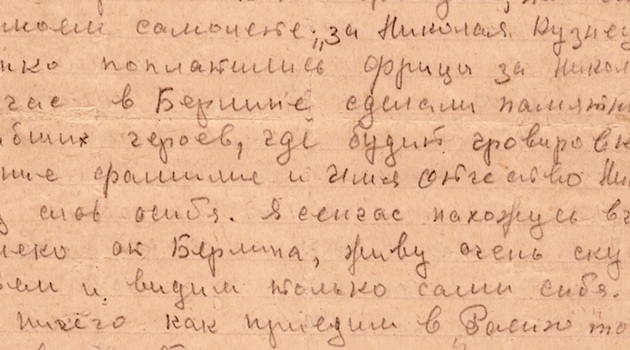 самолете: „за Николая Кузне
поплатились фрицы за Никол
час в Берлине сделали памятн
бших героев, где будит гровировк
ние фамилие и имя отчество Ни
слов особя. Я сейчас нахожусь в
леко от Берлина, живу очень ску
ем и видим только сами сибя.
ничего как приедим в Расию то